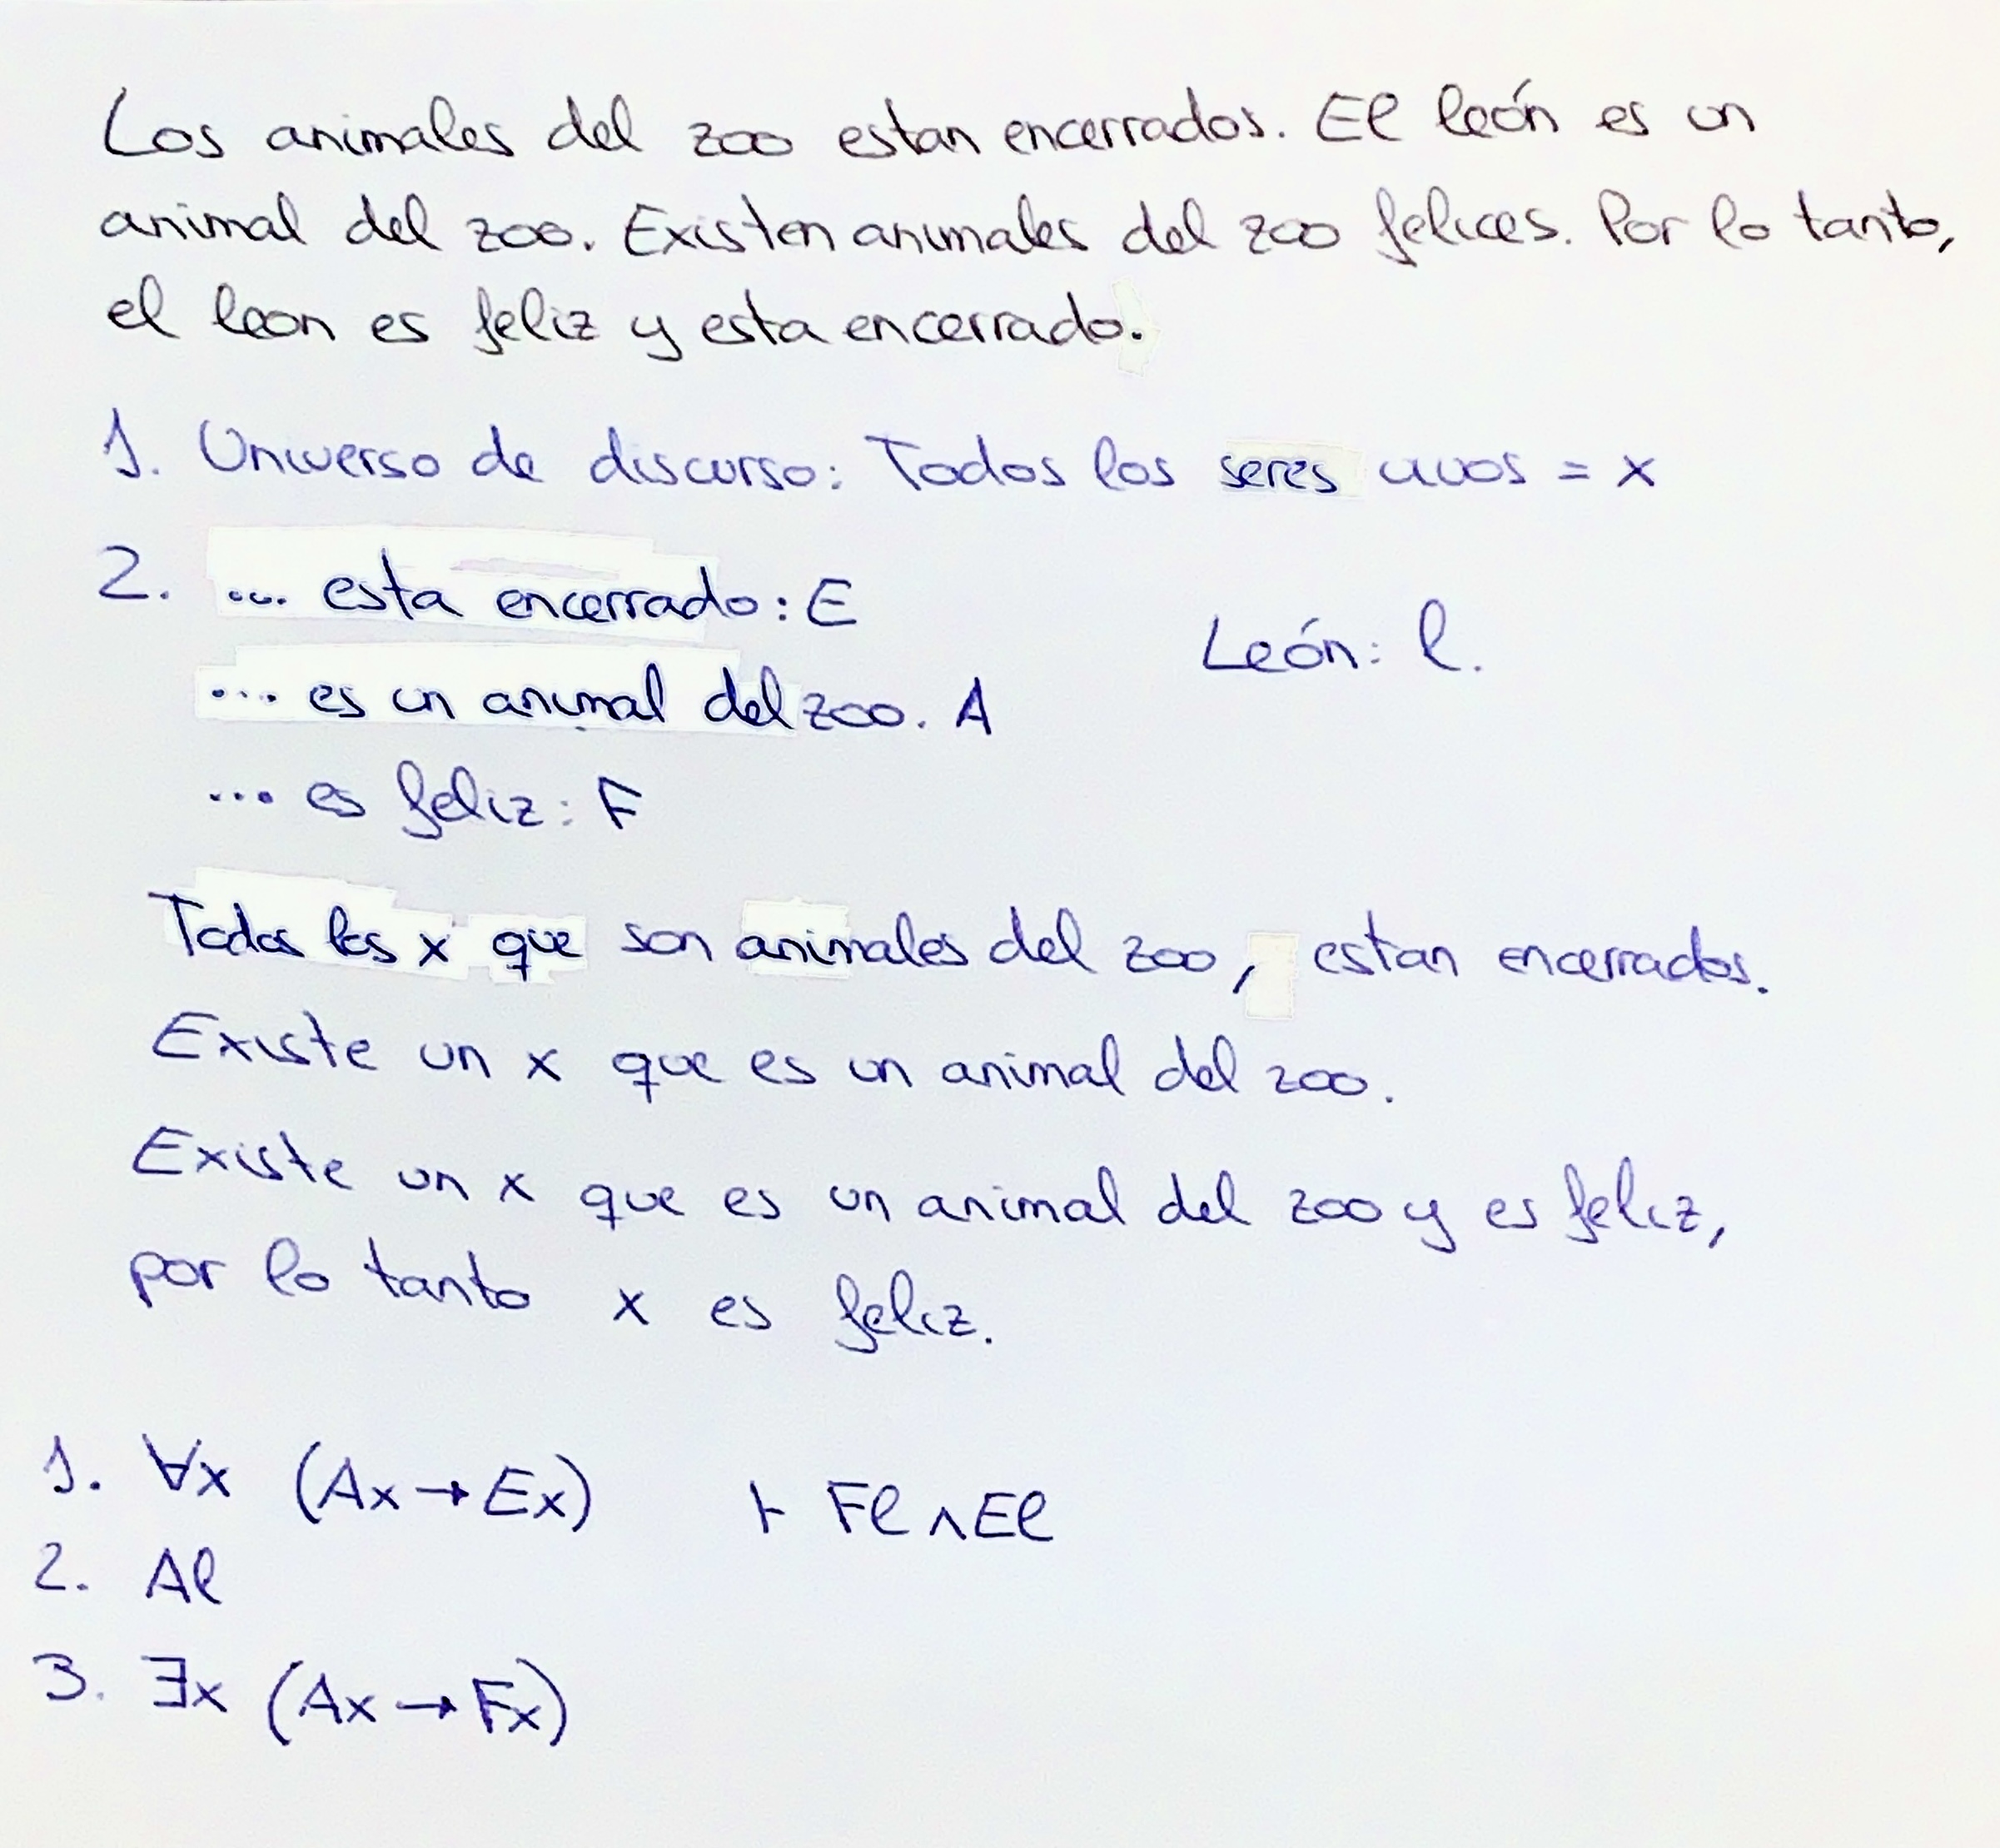 Los animales del zoo estan encerrados. El león es un
animal del zoo. Existen animales del zoo felices. Por lo tanto,
el leon es feliz y esta encerrado.
1. Universo de discurso: Todos los seres vivos = x
2. ... esta encerrado: E
León: l.
... es un animal del zoo. A
... es feliz: F
Todos los x que son animales del zoo, estan encerrados.
Existe un x que es un animal del zoo.
Existe un x que es un animal del zoo y es feliz,
por lo tanto x es feliz.
1. ∀x (Ax → Ex) ⊢ Fl ∧ El
2. Al
3. ∃x (Ax → Fx)